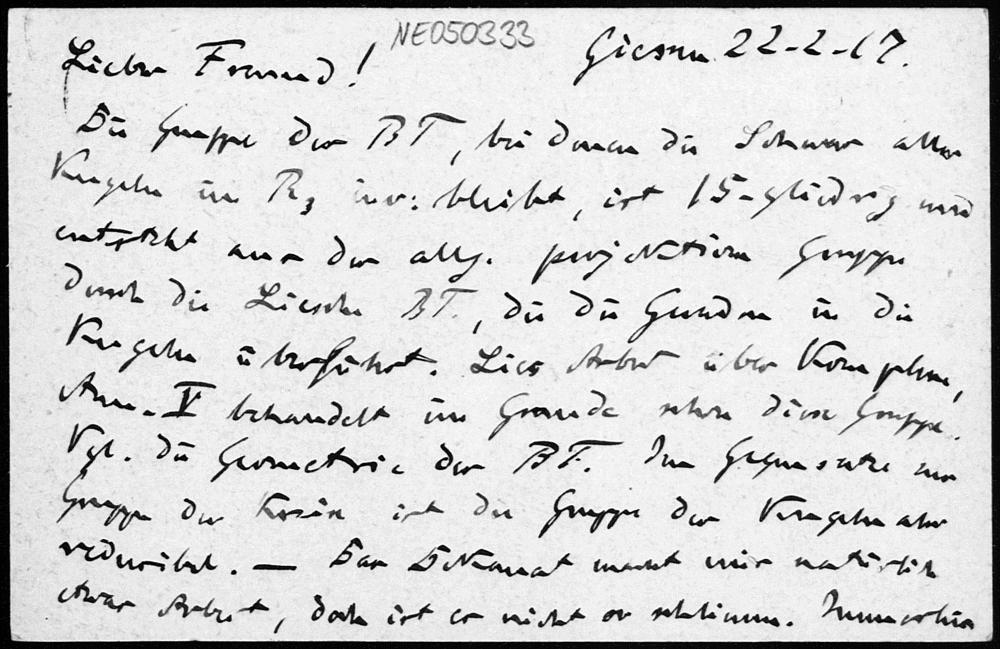 NE050333
Giessen 22-2-17.
Lieber Freund!
Die Gruppe der BT, bei denen die Schaar aller
Kugeln im R3 inv: bleibt, ist 15-gliedrig und
entsteht aus der allg. projektiven Gruppe
durch die Liesche BT., die die Geraden in die
Kugeln überführt. Lies Arbeit über Komplexe,
Ann. V behandelt im Grunde schon diese Gruppe.
Vgl. die Geometrie der BT. Im Gegensatze zur
Gruppe der Kreise ist die Gruppe der Kugeln aber
reducibel. — Das Dekanat macht mir natürlich
etwas Arbeit, doch ist es nicht so schlimm. Immerhin